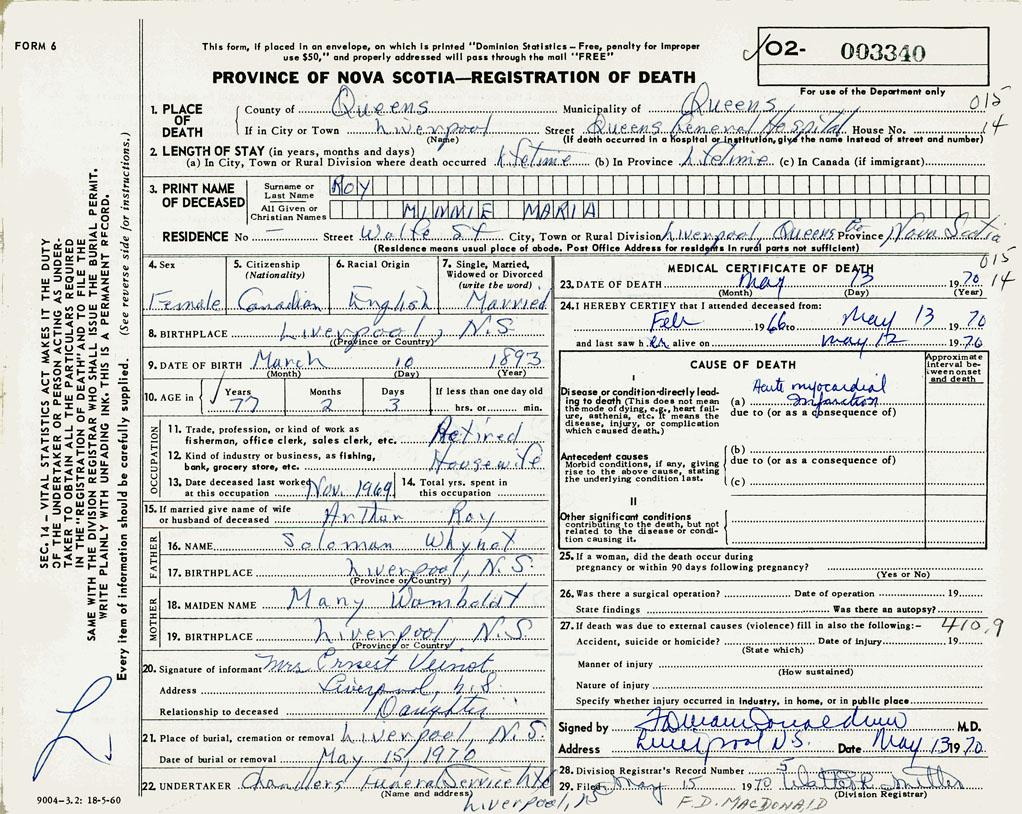 FORM 6
This form, if placed in an envelope, on which is printed "Dominion Statistics – Free, penalty for improper
use $50," and properly addressed will pass through the mail "FREE"
PROVINCE OF NOVA SCOTIA—REGISTRATION OF DEATH
02- 003340
For use of the Department only
1. PLACE OF DEATH County of Queens Municipality of Queens 015
If in City or Town Liverpool Street Queens General Hospital House No. 14
(Name) (If death occurred in a hospital or institution, give the name instead of street and number)
2. LENGTH OF STAY (in years, months and days)
(a) In City, Town or Rural Division where death occurred lifetime (b) In Province lifetime (c) In Canada (if immigrant)
3. PRINT NAME OF DECEASED Surname or Last Name ROY
All Given or Christian Names MINNIE MARIA
RESIDENCE No – Street Wolfe St City, Town or Rural Division Liverpool, Queens Co Province Nova Scotia
(Residence means usual place of abode. Post Office Address for residents in rural parts not sufficient)
4. Sex 5. Citizenship (Nationality) 6. Racial Origin 7. Single, Married, Widowed or Divorced (write the word)
Female Canadian English Married
8. BIRTHPLACE Liverpool, N.S.
(Province or Country)
9. DATE OF BIRTH March 10 1893
(Month) (Day) (Year)
10. AGE in Years Months Days If less than one day old
77 2 3 hrs. or min.
OCCUPATION
11. Trade, profession, or kind of work as
fisherman, office clerk, sales clerk, etc. Retired
12. Kind of industry or business, as fishing,
bank, grocery store, etc. Housewife
13. Date deceased last worked at this occupation Nov. 1969 14. Total yrs. spent in this occupation
15. If married give name of wife
or husband of deceased Arthur Roy
FATHER
16. NAME Soloman Whynot
17. BIRTHPLACE Liverpool, N.S.
(Province or Country)
MOTHER
18. MAIDEN NAME Mary Wamboldt
19. BIRTHPLACE Liverpool, N.S.
(Province or Country)
20. Signature of informant Mrs Ernest Veinot
Address Liverpool, N.S.
Relationship to deceased Daughter
21. Place of burial, cremation or removal Liverpool, N.S.
Date of burial or removal May 15, 1970
22. UNDERTAKER Chandlers Funeral Service Ltd
(Name and address) Liverpool, NS
MEDICAL CERTIFICATE OF DEATH 015
23. DATE OF DEATH May 13 1970 14
(Month) (Day) (Year)
24. I HEREBY CERTIFY that I attended deceased from:
Feb 1966 to May 13 1970
and last saw her alive on May 12 1970
CAUSE OF DEATH
Approximate interval between onset and death
I
Disease or condition directly leading to death (This does not mean
the mode of dying, e.g., heart failure, asthenia, etc. It means the
disease, injury, or complication
which caused death.)
(a) Acute myocardial
Infarction
due to (or as a consequence of)
Antecedent causes
Morbid conditions, if any, giving
rise to the above cause, stating
the underlying condition last.
(b)
due to (or as a consequence of)
(c)
II
Other significant conditions
contributing to the death, but not
related to the disease or condition causing it.
25. If a woman, did the death occur during
pregnancy or within 90 days following pregnancy?
(Yes or No)
26. Was there a surgical operation? Date of operation 19
State findings Was there an autopsy?
27. If death was due to external causes (violence) fill in also the following:– 410.9
Accident, suicide or homicide? Date of injury 19
(State which)
Manner of injury
(How sustained)
Nature of injury
Specify whether injury occurred in industry, in home, or in public place
Signed by M.D.
Address Liverpool N.S. Date May 13 1970
28. Division Registrar's Record Number 5
29. Filed May 15 1970
(Division Registrar)
F.D. MACDONALD
SEC. 14 – VITAL STATISTICS ACT MAKES IT THE DUTY
OF THE UNDERTAKER OR PERSON ACTING AS UNDER-
TAKER TO OBTAIN ALL THE PARTICULARS REQUIRED
IN THE "REGISTRATION OF DEATH" AND TO FILE THE
SAME WITH THE DIVISION REGISTRAR WHO SHALL ISSUE THE BURIAL PERMIT.
WRITE PLAINLY WITH UNFADING INK. THIS IS A PERMANENT RECORD.
Every item of information should be carefully supplied. (See reverse side for instructions.)
9004–3.2: 18-5-60